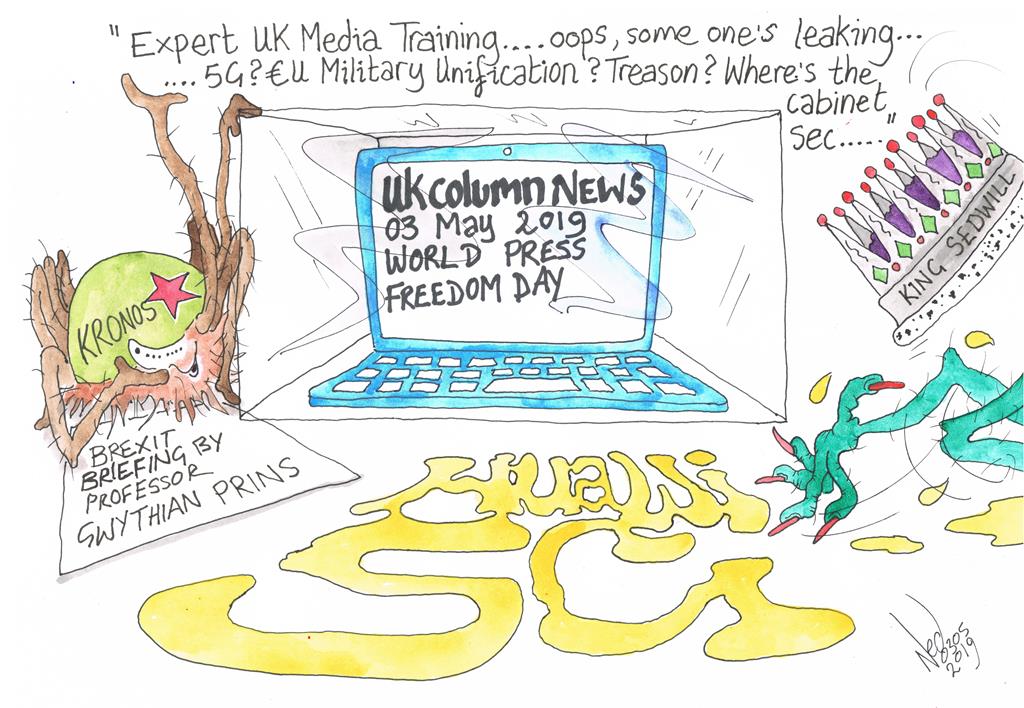 "Expert UK Media Training....oops, some one's leaking...
....5G?€U Military Unification? Treason? Where's the
cabinet
sec....."
UKcolumn NEWS
03 May 2019
WORLD PRESS
FREEDOM DAY
KING SEDWILL
KRONOS
BREXIT
BRIEFING BY
PROFESSOR
GWYTHIAN PRINS
HUAWi
5G
2019